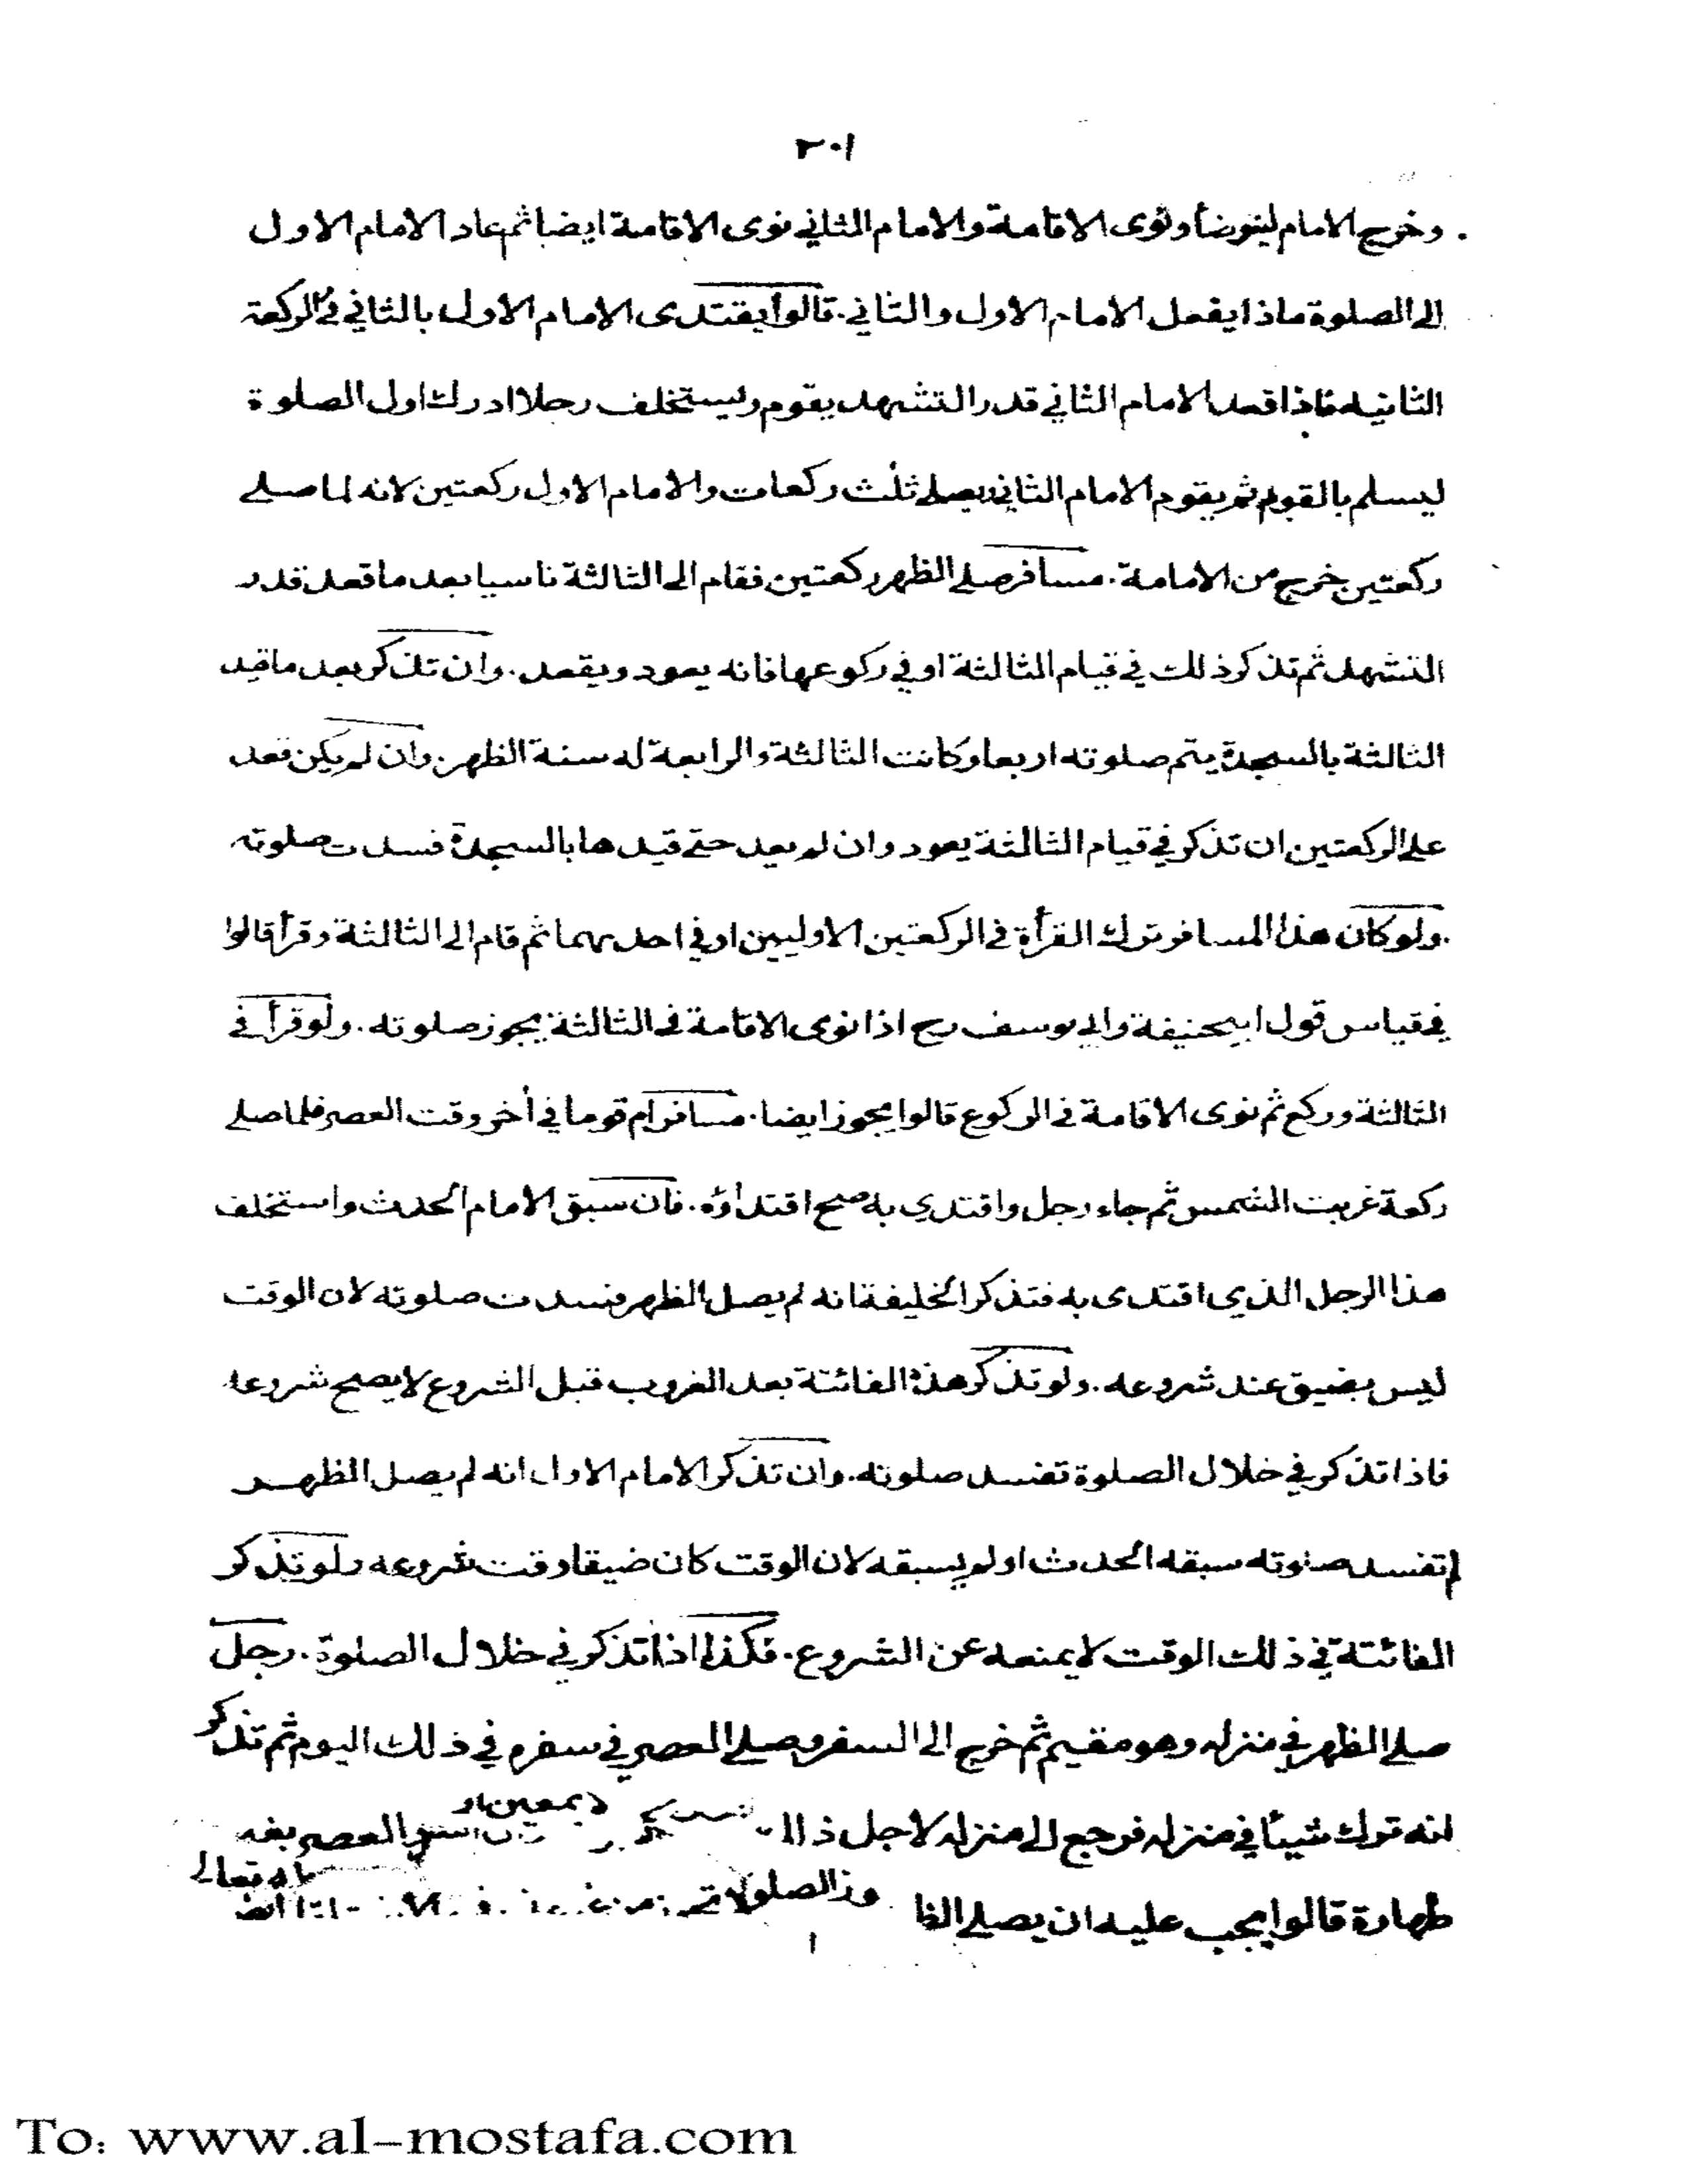 ٢٠١
وخرج الامام ليتوضأ ونوى الاقامة والامام الثاني نوى الاقامة ايضا ثم عاد الامام الاول
الى الصلوة ماذا يفعل الامام الاول والثاني. قالوا يقتدى الامام الاول بالثاني في الركعة
الثانيه فاذا قعد الامام الثاني قدر التشهد يقوم ويستخلف رجلا ادرك اول الصلوة
ليسلم بالقوم ثم يقوم الامام الثاني ويصلى ثلث ركعات والامام الاول ركعتين لانه لما صلى
ركعتين خرج من الامامة. مسافر صلى الظهر ركعتين فقام الى الثالثة ناسيا بعد ما قعد قدر
التشهد ثم تذكر ذلك في قيام الثالثة او في ركوعها فانه يعود ويقعد. وان تذكر بعد ما قيد
الثالثة بالسجدة يتم صلوته اربعا وكانت الثالثة والرابعة له سنة الظهر. وان لم يكن قعد
على الركعتين ان تذكر في قيام الثالثة يعود وان لم يعد حتى قيدها بالسجدة فسدت صلوته
.ولو كان هذا المسافر ترك القرأة فى الركعتين الاوليين او في احدٮهما ثم قام الى الثالثة وقرأ قالوا
في قياس قول ابيحنيفة وابي يوسف رح اذا نوى الاقامة فى الثالثة يجوز صلوته. ولو قرأ فى
الثالثة وركع ثم نوى الاقامة فى الركوع قالوا يجوز ايضا. مسافر ام قوما في أخر وقت العصر فلما صلى
ركعة غربت الشمس ثم جاء رجل واقتدي به صح اقتداؤه. فان سبق الامام الحدث واستخلف
هذا الرجل الذي اقتدى به فتذكر الخليفة انه لم يصل الظهر فسدت صلوته لان الوقت
ليس بضيق عند شروعه. ولو تذكر هذه الفائتة بعد الغروب قبل الشروع لا يصح شروعه
فاذا تذكر في خلال الصلوة تفسد صلوته. وان تذكر الامام الاول انه لم يصل الظهر
لم تفسد صلوته سبقه الحدث او لم يسبقه لان الوقت كان ضيقا وقت شروعه ولو تذكر
الفائتة في ذلك الوقت لا يمنعه عن الشروع. فكذا اذا تذكر في خلال الصلوة. رجل
صلى الظهر في منزله وهو مقيم ثم خرج الى السفر وصلى العصر في سفره في ذلك اليوم ثم تذكر
انه ترك شيئا في منزله فرجع الى منزله لاجل ذلك والعصر بغير
طهارة قالوا يجب عليه ان يصلى الصلوة تعالى
To: www.al-mostafa.com